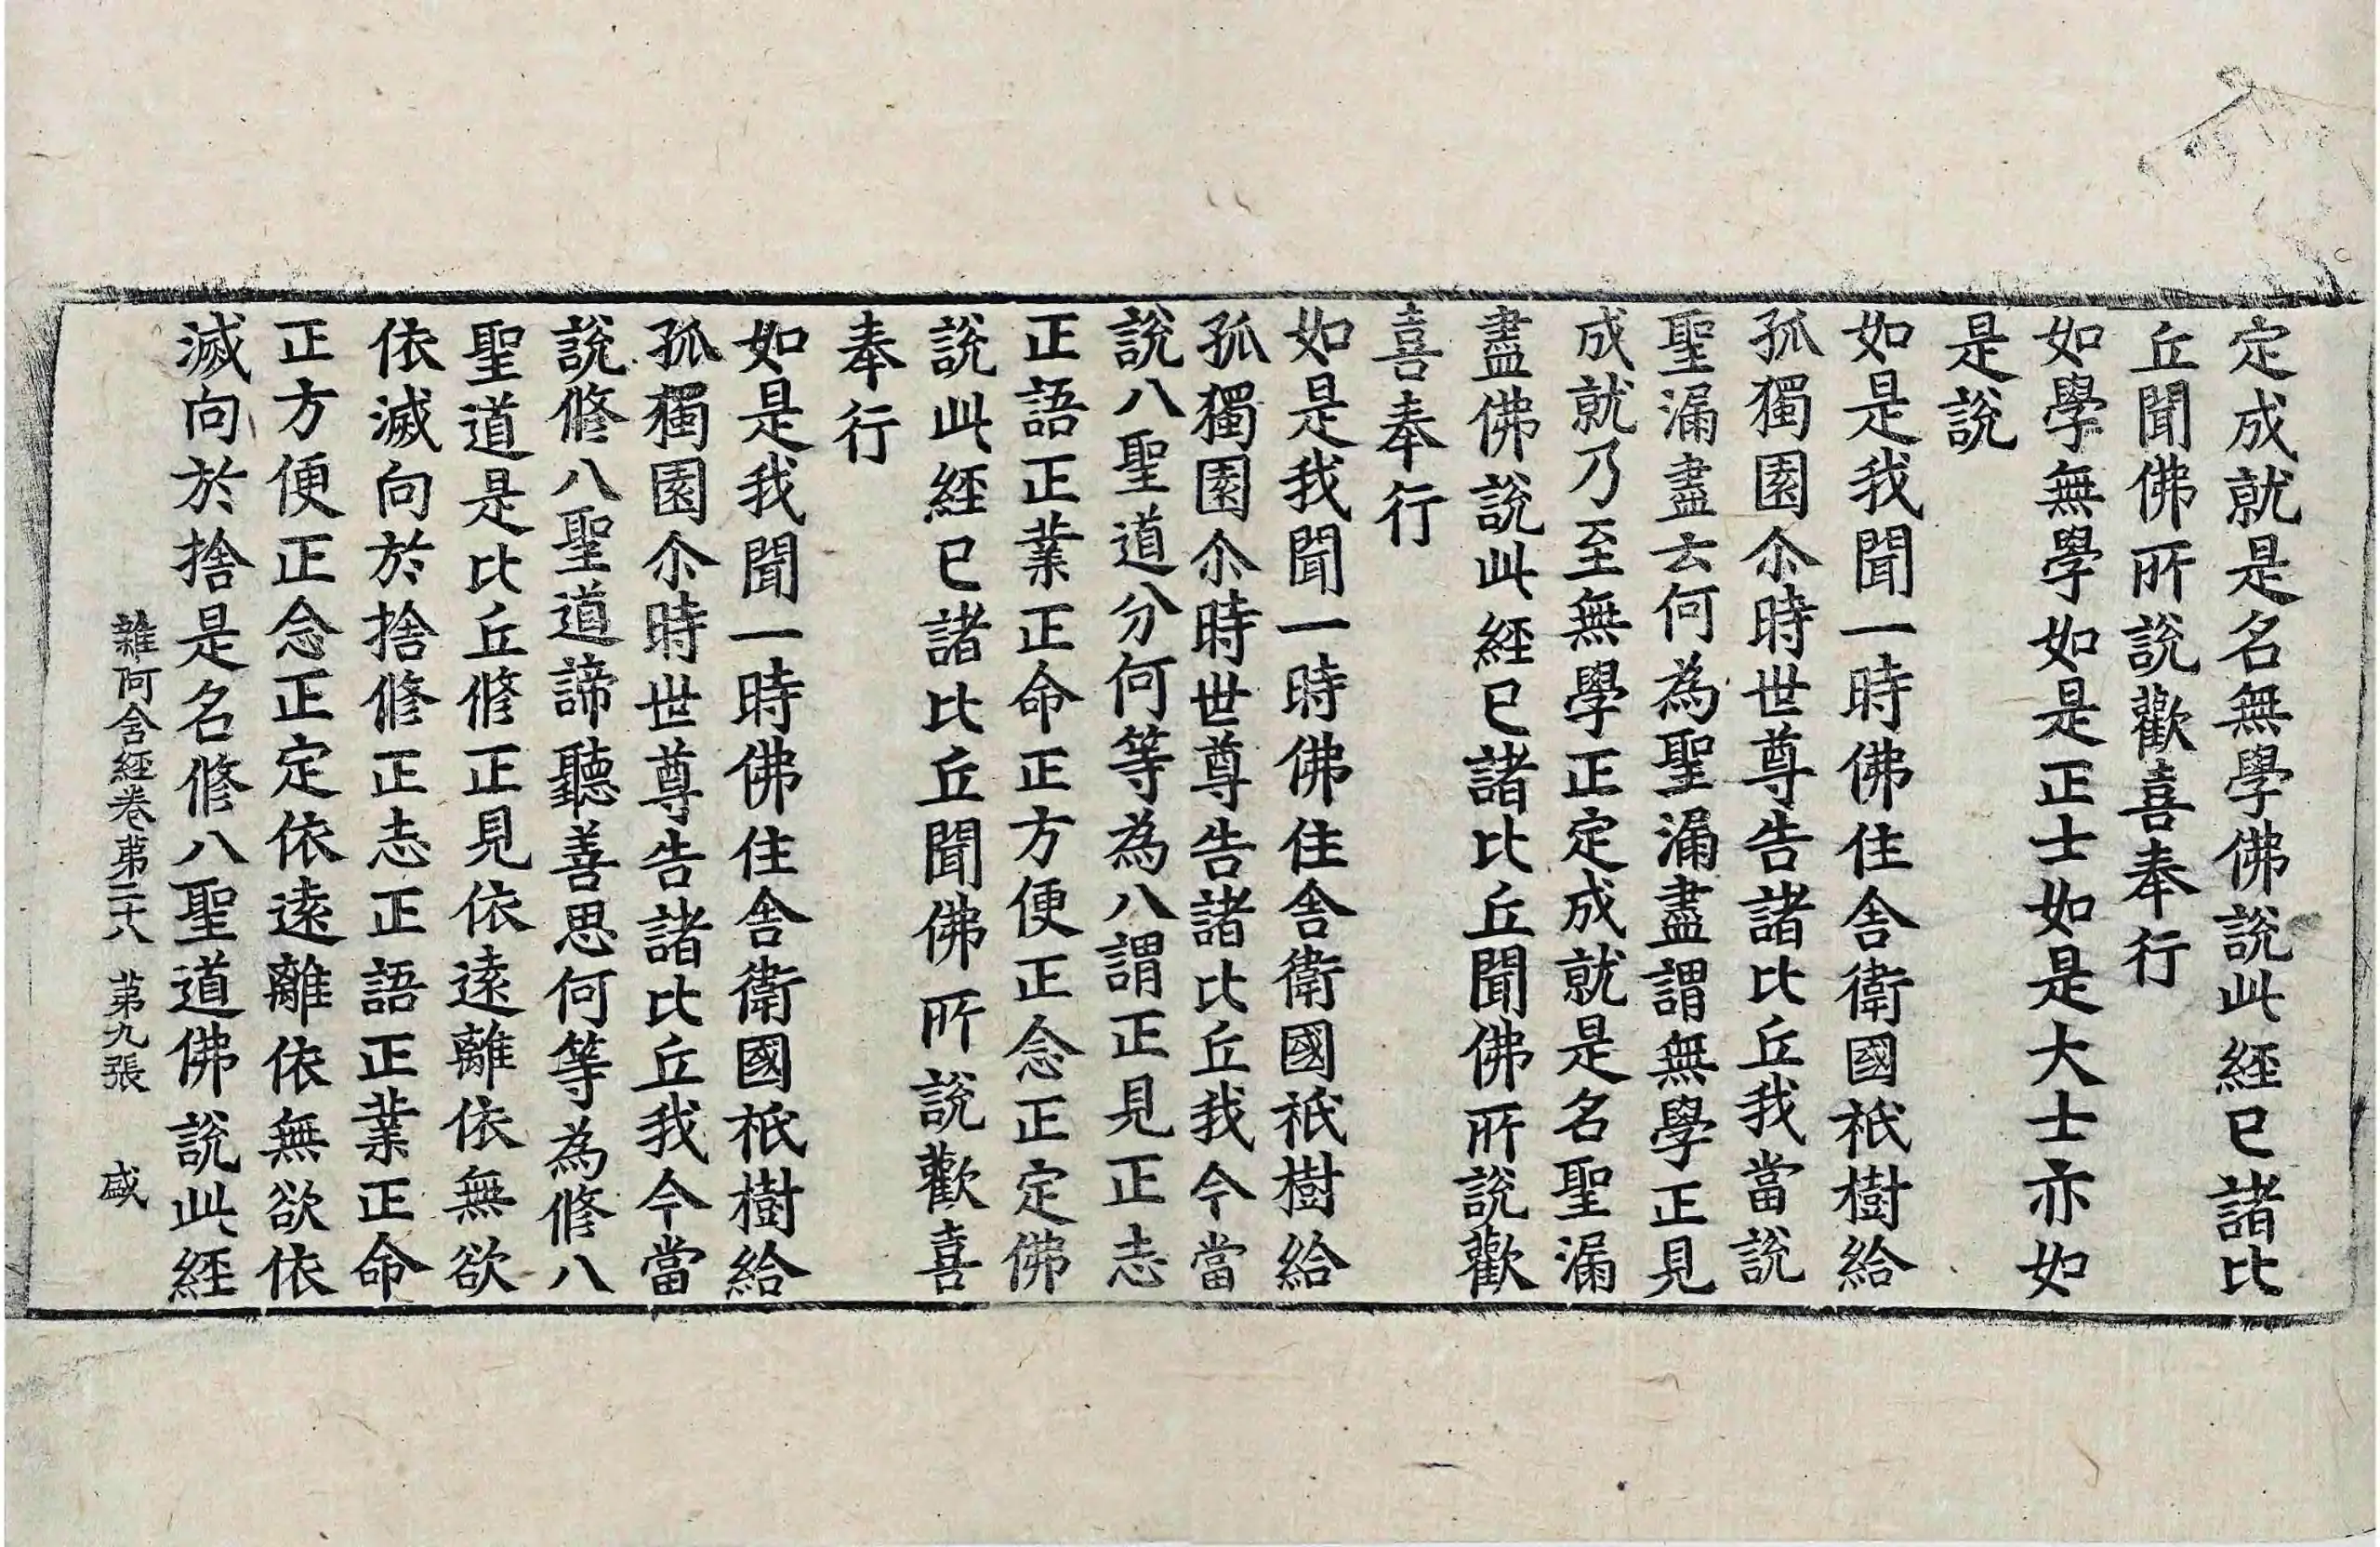 定成就是名無學佛說此經已諸比
丘聞佛所說歡喜奉行
如學無學如是正士如是大士亦如
是說
如是我聞一時佛住舍衛國祇樹給
孤獨園尒時世尊告諸比丘我當說
聖漏盡云何為聖漏盡謂無學正見
成就乃至無學正定成就是名聖漏
盡佛說此經已諸比丘聞佛所說歡
喜奉行
如是我聞一時佛住舍衛國祇樹給
孤獨園尒時世尊告諸比丘我今當
說八聖道分何等為八謂正見正志
正語正業正命正方便正念正定佛
說此經已諸比丘聞佛所說歡喜
奉行
如是我聞一時佛住舍衛國祇樹給
孤獨園尒時世尊告諸比丘我今當
說脩八聖道諦聽善思何等為脩八
聖道是比丘脩正見依遠離依無欲
依滅向於捨脩正志正語正業正命
正方便正念正定依遠離依無欲依
滅向於捨是名脩八聖道佛說此經
雜阿含經卷苐二十八 苐九張 盛